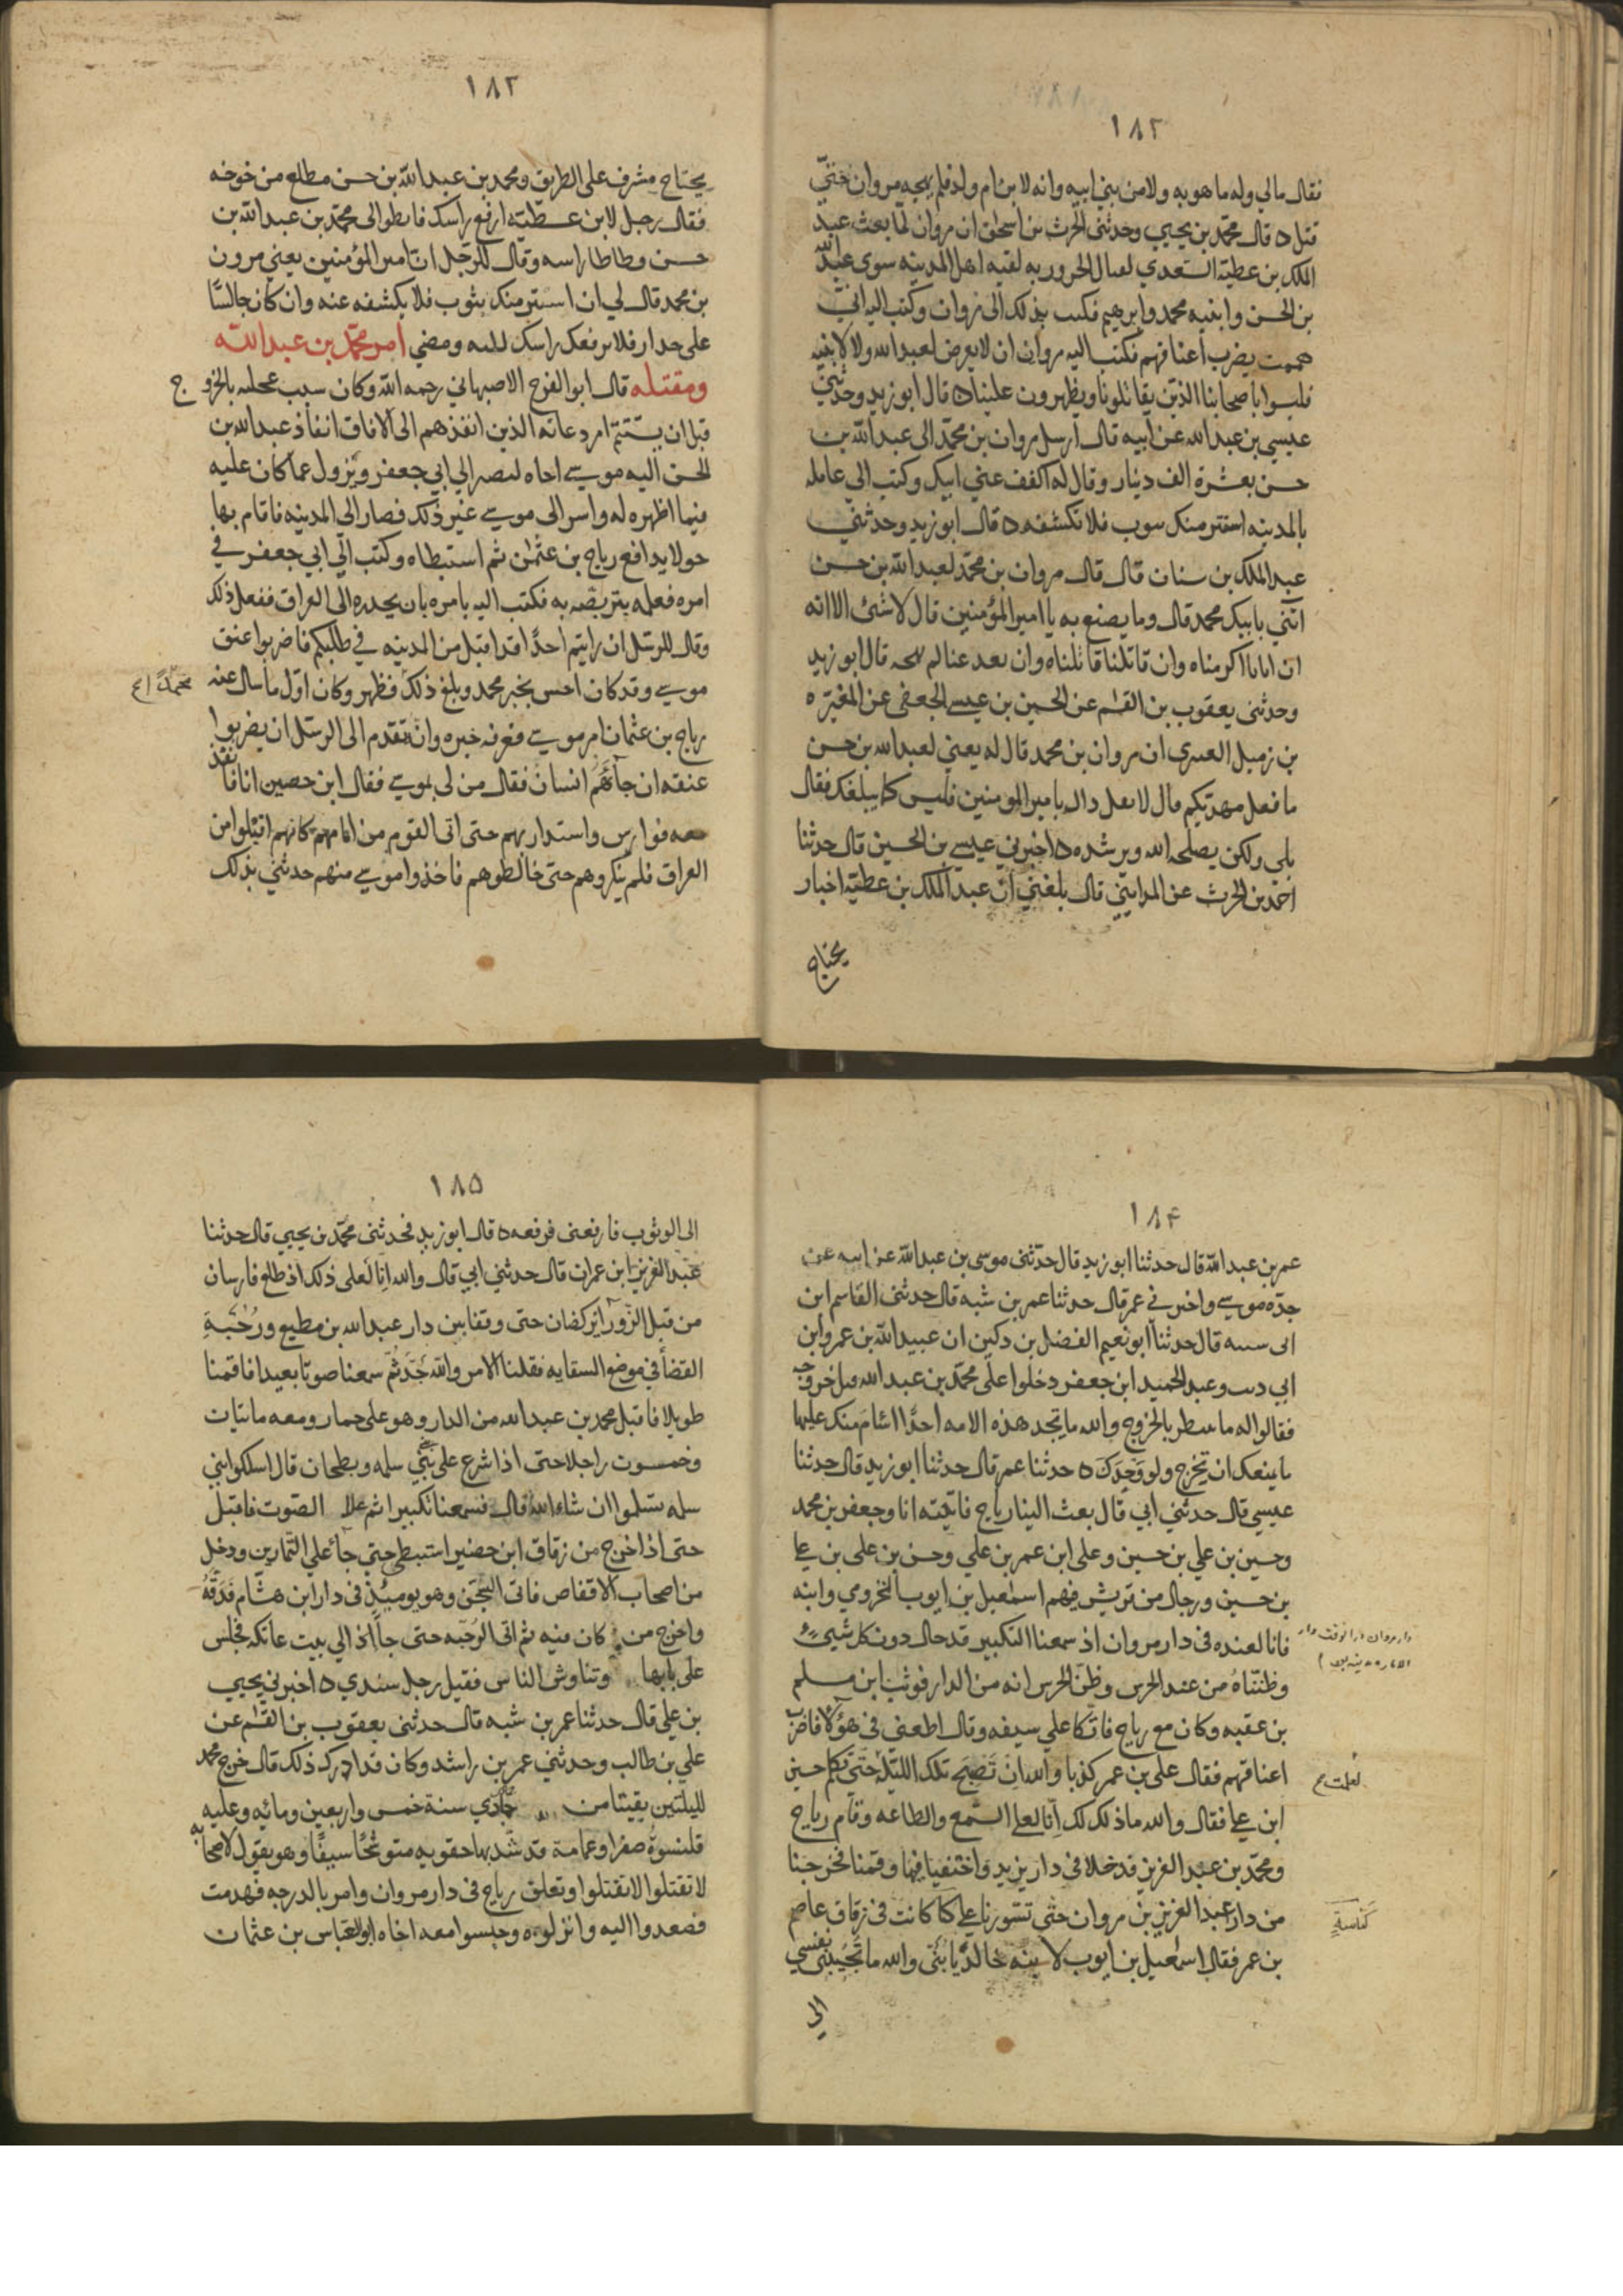 ١٨٢
فقال مالي وله ما هو به ولا من بني ابيه وانه لابن ام ولد فلم يهجه مروان حتى
قتل ه قال محمد بن يحيى وحدثني الحرث بن اسحق ان مروان لما بعث عبد
الملك بن عطية السعدي لقتال الحروريه لقيه اهل المدينه سوى عبد الله
بن الحسن وابنيه محمد وابرهيم فكتب بذلك الى مروان وكتب اليه اني
هممت بضرب اعناقهم فكتب اليه مروان ان لا يعرض لعبد الله ولا لابنيه
فليسوا باصحابنا الذين يقاتلونا ويظهرون علينا ه قال ابو زيد وحدثني
عيسى بن عبد الله عن ابيه قال ارسل مروان بن محمد الى عبد الله بن
حسن بعشرة الف دينار وقال له اكفف عني ابنيك وكتب الى عامله
بالمدينه استتر منك بثوب فلا تكشفه ه قال ابو زيد وحدثني
عبد الملك بن سنان قال قال مروان بن محمد لعبد الله بن حسن
ائتني بابنك محمد قال وما يصنع به يا امير المؤمنين قال لا شئ الا انه
ان اتانا اكرمناه وان قاتلنا قاتلناه وان بعد عنا لم نهجه قال ابو زيد
وحدثني يعقوب بن القسم عن الحسين بن عيسى الجعفي عن المغيره
بن زميل العنبري ان مروان بن محمد قال له يعني لعبد الله بن حسن
ما فعل مهديكم قال لا تقل ذاك يا امير المومنين فليس كما يبلغك فقال
بلى ولكن يصلحه الله ويرشده ه اخبرني عيسى بن الحسين قال حدثنا
احمد بن الحرث عن المدايني قال بلغني ان عبد الملك بن عطية اخبار
يحتاج
١٨٣
يحتاج مشرف على الطريق ومحمد بن عبد الله بن حسن مطلع من خوخه
فقال رجل لابن عطيته ارفع راسك فانظر الى محمد بن عبد الله بن
حسن وطاطا راسه وقال للرجل ان امير المؤمنين يعني مرون
بن محمد قال لي ان استتر منك بثوب فلا يكشفه عنه وان كان جالسًا
على جدار فلا ترفعك راسك لليه ومضي امر محمد بن عبد الله
ومقتله قال ابو الفرج الاصبهاني رحمه الله وكان سبب عجلته بالخروج
قبل ان يستتم امر دعاته الذين انفذهم الى الافاق انفاذ عبد الله بن
الحسن اليه موسى اخاه ليصير الى ابي جعفر ويزول عما كان عليه
فيما اظهره له واسر الى موسى غير ذلك فصار الى المدينه فاقام بها
حولا يدافع رياح بن عثمن ثم استبطاه وكتب الى ابي جعفر في
امره فعله بتربصه به فكتب اليه يامره بان يحدره الى العراق ففعل ذلك
وقال للرسل ان رايتم احدًا قد اقبل من المدينه في طلبكم فاضربوا عنق
موسى وقد كان احس بخبر محمد وبلغ ذلك فظهر وكان اول ما سال عنه
محمدًا ع
رياح بن عثمان امر موسى فعرفه خبره وانه تقدم الى الرسل ان يضربوا
عنقه ان جآءهم انسان فقال من لي بموسى فقال ابن حصين انا فانفذ
معه فوارس واستدار بهم حتى اتى القوم من امامهم كانهم اقبلوا من
العراق فلم ينكروهم حتى خالطوهم فاخذوا موسى منهم حدثني بذلك
١٨۴
عمر بن عبد الله قال حدثنا ابو زيد قال حدثني موسى بن عبد الله عن ابيه عن
جده موسى واخبرني عمر قال حدثنا عمر بن شبه قال حدثني القاسم ابن
ابي شيبه قال حدثنا ابو نعيم الفضل بن دكين ان عبيد الله بن عمر وابن
ابي ديب وعبد الحميد ابن جعفر دخلوا على محمد بن عبد الله قبل خروجه
فقالوا له ما تنتظر بالخروج والله ما تجد هذه الامه احدًا اشام منك عليها
ما يمنعك ان تخرج ولو وحدك ه حدثنا عمر قال حدثنا ابو زيد قال حدثنا
عيسى قال حدثني ابي قال بعث الينا رياح فاتيته انا وجعفر بن محمد
وحسين بن علي بن حسين وعلى ابن عمر بن علي وحسن بن على بن على
بن حسين ورجال من قريش فيهم اسمعيل بن ايوب المخزومي وابنه
فانا لعنده في دار مروان اذ سمعنا التكبير قد حال دون كل شيء
وظنناه من عند الحرس وظن الحرس انه من الدار فوثب ابن مسلم
بن عقبه وكان مع رياح فاتكا على سيفه وقال اطعني في هؤلا فاضرب
اعناقهم فقال على بن عمر كذبا والله ان تصبح تلك الليله حتى تكلم حسين
لعلت ع
ابن على فقال والله ما ذلك لك انا لعلى السمع والطاعه وقام رياح
ومحمد بن عبد العزيز قد خلا في دار يزيد واختفيا فيها وقمنا فخرجنا
من دار عبد العزيز بن مروان حتى تسورنا على كبا كانت في زقاق عاصم
كناسةٍ
بن عمر فقال اسمعيل بن ايوب لابنه خالد يا بني والله ما تجيبني نفسي
الى
١٨۵
الى الوثوب فارفعنى فرفعه ه قال ابو زيد فحدثني محمد بن يحيى قال حدثنا
عبد العزيز ابن عمران قال حدثني ابي قال والله انا لعلى ذلك اذ طلع فارسان
من قبل الزورآ يركضان حتى وقفا بين دار عبد الله بن مطيع ورحبة
القضآ في موضع السقايه فقلنا الامر والله جد ثم سمعنا صوتا بعيدا فاقمنا
طويلا فاقبل محمد بن عبد الله من الدار وهو على حمار ومعه مايتات
وخمسون راجلا حتى اذا شرع على بني سلمه وبطحان قال اسلكوا بني
سلمه تسلموا ان شاء الله قال فسمعنا تكبيرا ثم علا الصوت فاقبل
حتى اذا خرج من زقاق ابن حضير استبطى حتى جآ على التمارين ودخل
من اصحاب الاقفاص فاتى السجن وهو يوميئذٍ في دار ابن هشام فدقه
واخرج من كان فيه ثم اتى الرحبه حتى جآ اذ الي بيت عاتكه فجلس
على بابها وتناوش الناس فقيل رجل سندي ه اخبرني يحيى
بن علي قال حدثنا عمر بن شبه قال حدثني يعقوب بن القسم عن
علي بن طالب وحدثني عمر بن راشد وكان قد ادرك ذلك قال خرج محمد
لليلتين بقيتا من جمادي سنة خمس واربعين ومائه وعليه
قلنسوةٌ صفرا وعمامة قد شد بها حقويه متوشحًا سيفًا وهو يقول لاصحابه
لا تقتلوا لا تقتلوا وتعلق رياح في دار مروان وامر بالدرجه فهدمت
فصعدوا اليه وانزلوه وحبسوا معه اخاه ابو العباس بن عثمان